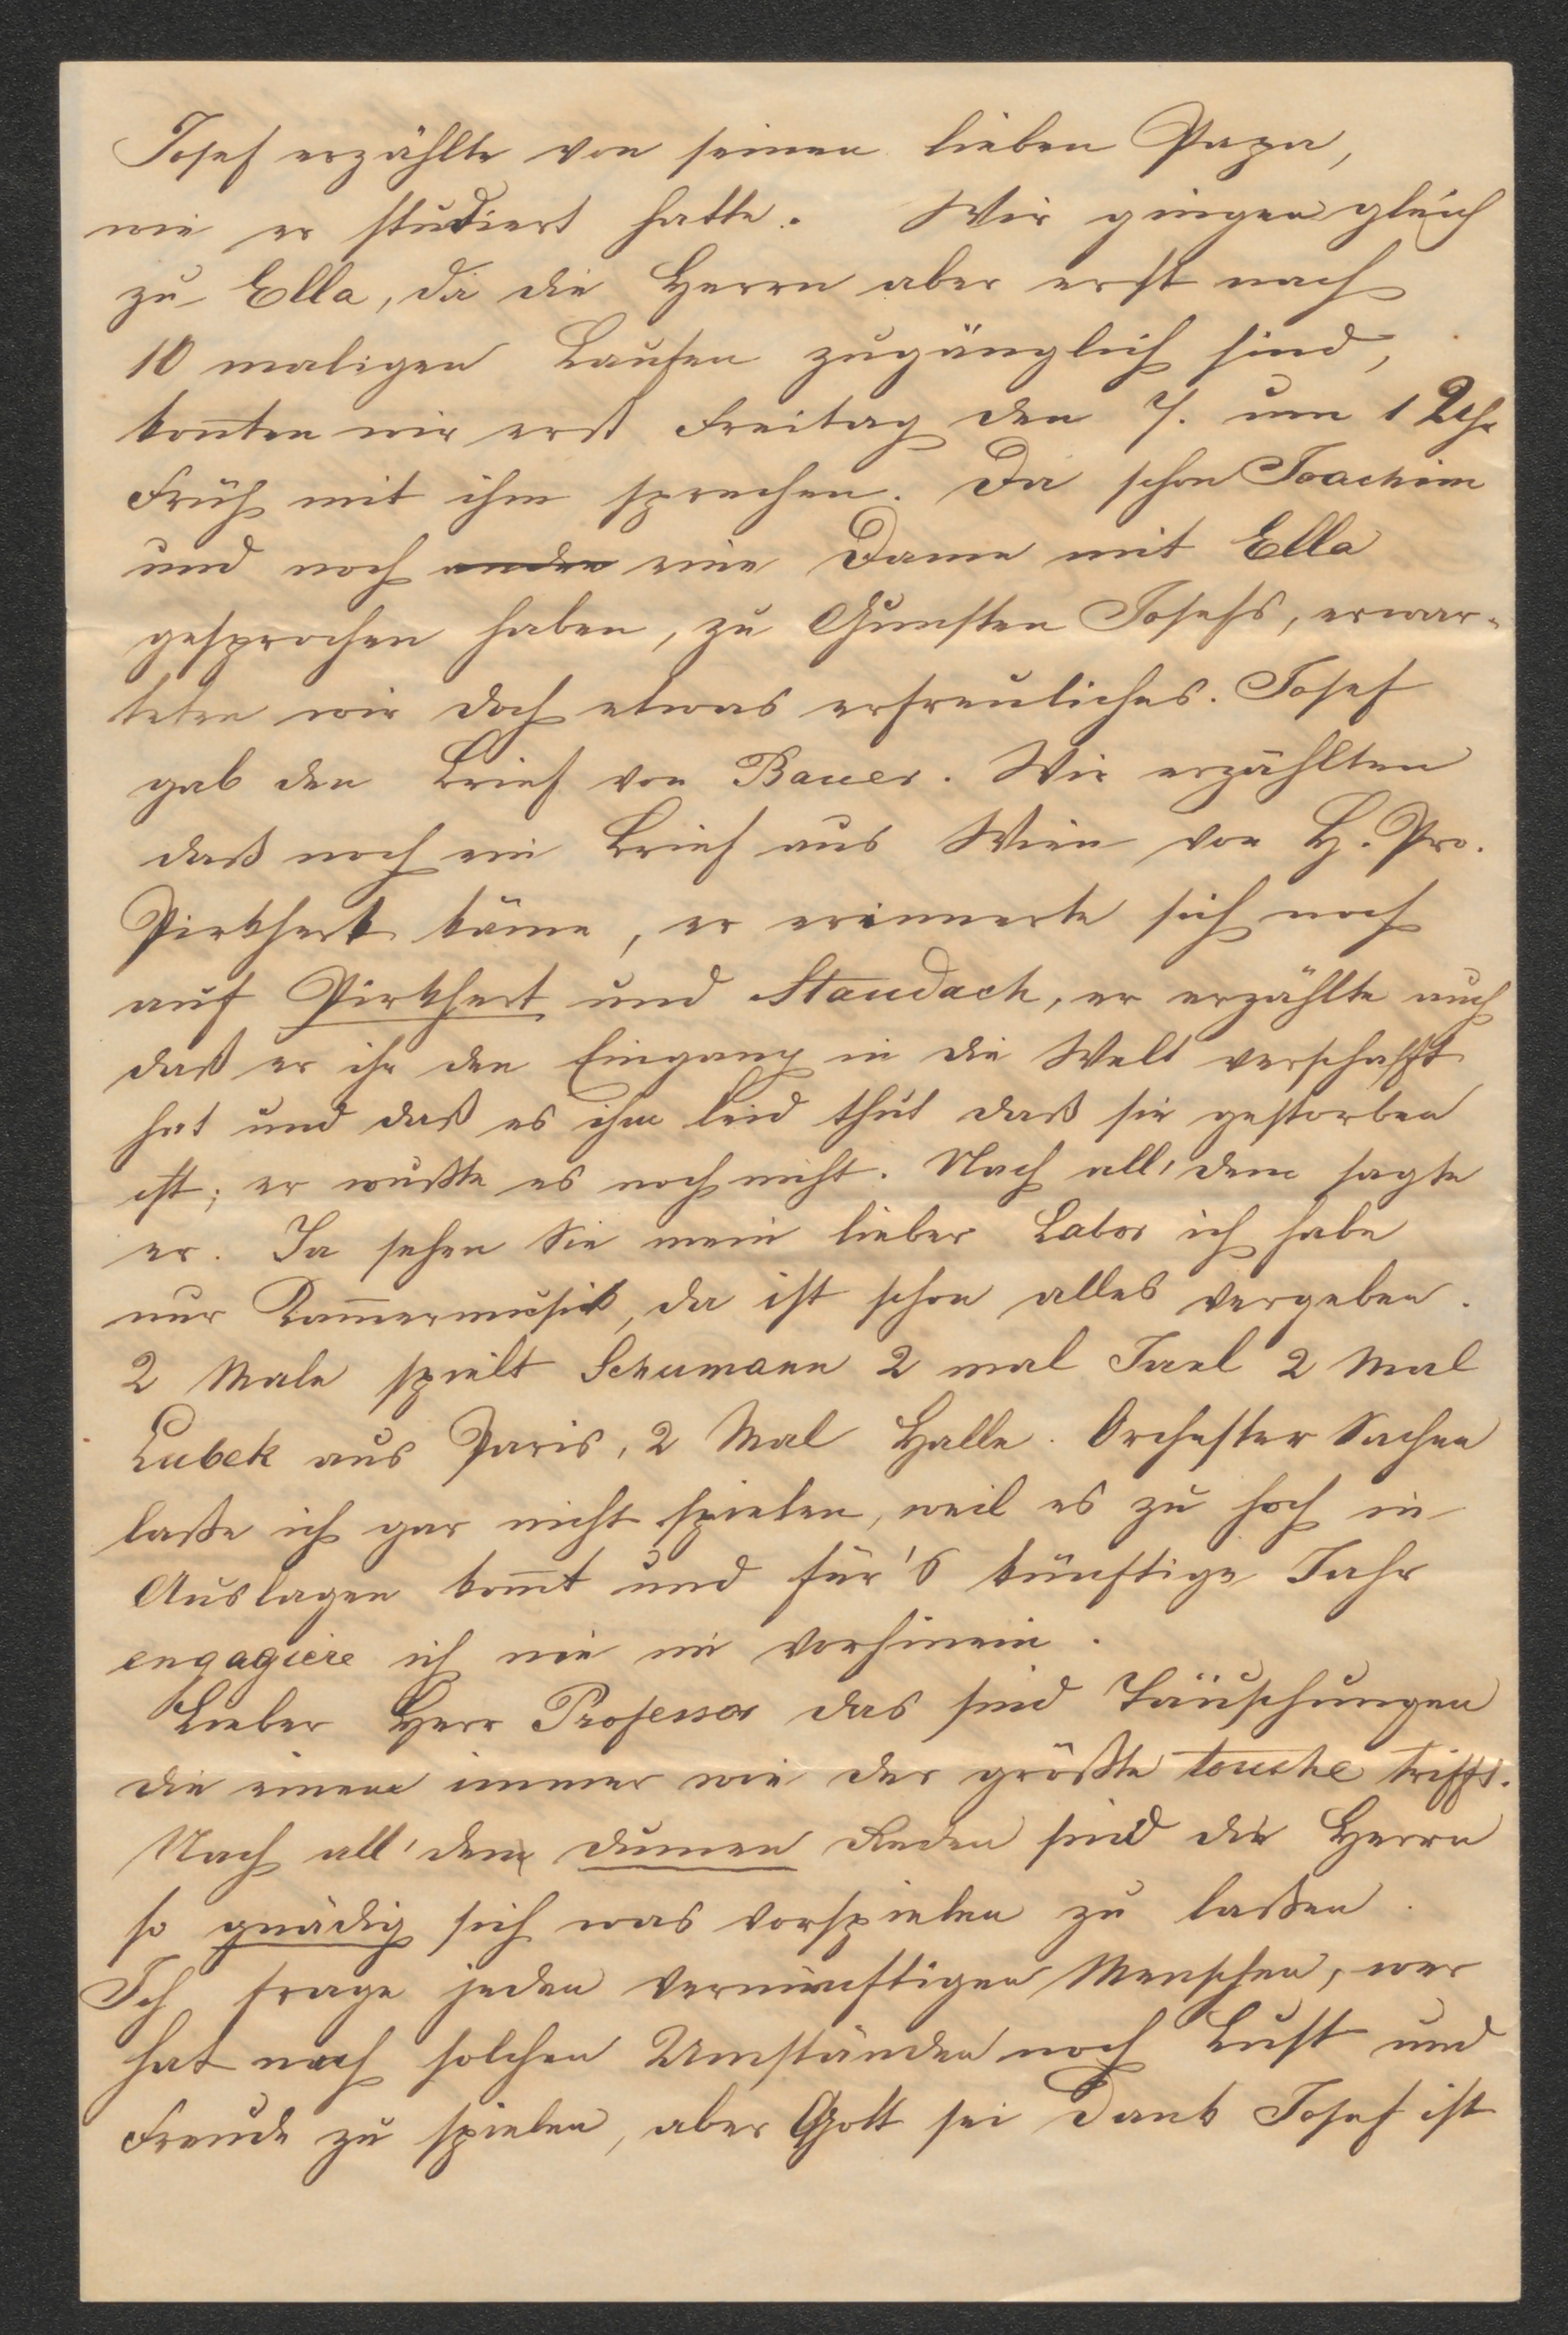 Josef erzählte von seinen lieben Papa,
wie er studiert hatte. Wir gingen gleich
zu Ella, da die Herrn aber erst nach
10 maligen Laufen zugänglich sind,
konnten wir erst Freitag den 7. um 12 Uhr
Früh mit ihm sprechen. Da schon Joachim
und noch andre eine Dame mit Ella
gesprochen haben, zu Gunsten Josefs, erwar-
teten wir doch etwas erfreuliches. Josef
gab den Brief von Bauer. Wir erzählten
daß noch ein Brief aus Wien von H. Pro.
Pirkhert käme, er erinnerte sich noch
auf Pirkhert und Staudach, er erzählte auch
daß er ihr den Eingang in die Welt verschafft
hat und daß es ihm leid thut daß sie gestorben
ist; er wußte es noch nicht. Nach all' dem sagte
er. Ja sehen Sie mein lieber Labor ich habe
nur Kam̅ermusik, da ist schon alles vergeben.
2 Male spielt Schumann 2 mal Jael 2 Mal
Lubek aus Paris, 2 Mal Halle. Orchester Sachen
laße ich gar nicht spielen, weil es zu hoch in
Auslagen kom̅t und für's künftige Jahr
engagiere ich nie im vorhinein.
Lieber Herr Professor das sind Täuschungen
die einem immer wie der größte touche trifft.
Nach all' dem dumen Reden sind die Herrn
so gnädig sich was vorspielen zu laßen.
Ich frage jeden vernünftigen Menschen, wer
hat nach solchen Umständen noch Lust und
Freude zu spielen, aber Gott sei Dank Josef ist